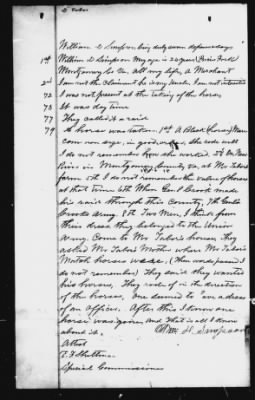 William H. Simpson being duly sworn deposes & says
1st William H Simpson My age is 24 years Price's Fork
Montgomery Co Va, all my life, a Merchant
2nd I am not the claimant he is my uncle. I am not interested
72 I was not present at the taking of the horse
73 It was day time
77 They called it a raid
79 A horse was taken. 1st A Black (horse) Mare
com non age, in good order. She rode well
I do not remember how she worked. 3d On New
River in Montgomery County Va, at Mr Tabors
farm 5th I do not remember the value of horses
at that time 6th When Genl Crook made
his raid through this County, 7th Genls
Crooks Army. 8th Two Men, I think from
their dress they belonged to the Union
Army. Come to Mr Tabors house, they
asked Mr Tabors Mother where Mr Tabors
horses were, (Then words passed I
do not remember) They said they wanted
his horses, They rode of in the direction
of the horses, One seemed to an address
of an officer. After this I know one
horse was gone, and that is all I know
about it. Wm H. Simpson
Attest
Special Commissioner